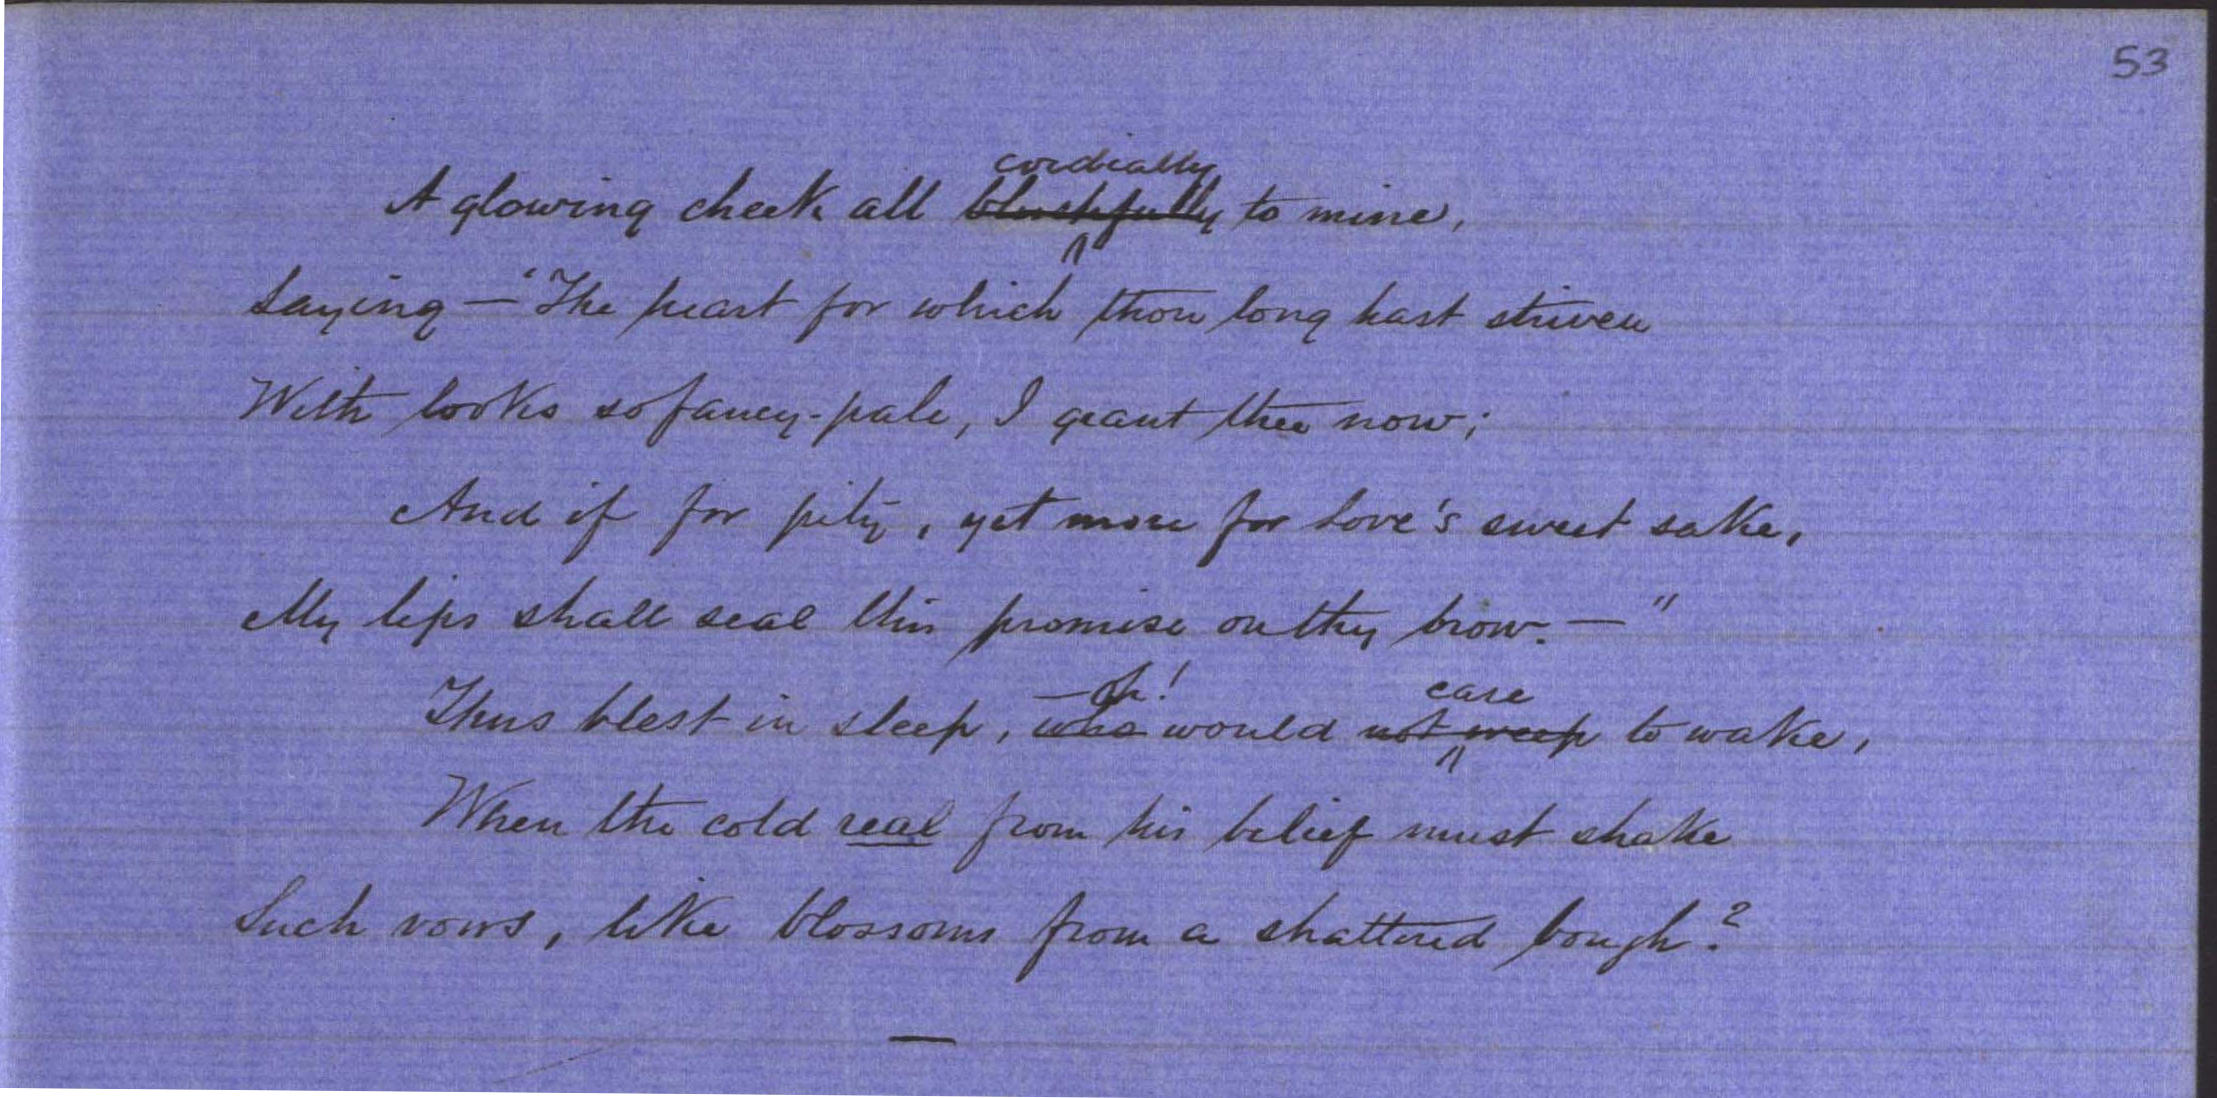 53
cordially
A glowing cheek all blushfully to mine,
Saying — "The heart for which thou long hast striven
With looks so fancy-pale, I grant thee now;
And if for pity, yet more for love's sweet sake,
My lips shall seal this promise on thy brow. — "
— oh! care
Thus blest in sleep, who would not weep to wake,
When the cold real from his belief must shake
Such vows, like blossoms from a shattered bough?